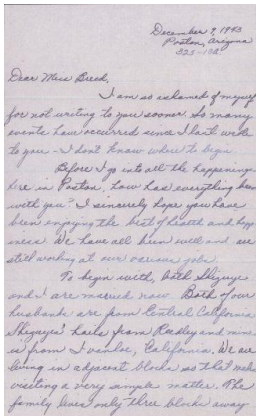 December 7, 1943
Poston, Arizona
Dear Miss Breed,
I am so ashamed of myself
for not writing to you sooner! So many
events have occurred since I last wrote
to you - I don't know where to begin.
Before I go into all the happenings
here in Poston, how has everything been
with you? I sincerely hope you have
been enjoying the best of health and happ
iness. We have all been well and are
still working at our various jobs.
To begin with, both
and I are married now. Both of our
husbands are from Central California
hails from Reedley and mine
is from Ivanhoe, California. We are
living in adjacent blocks so that makes
visiting a very simple matter. The
family lives only three blocks away